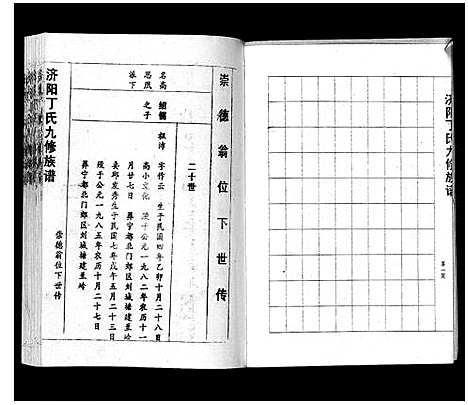 济阳丁氏九修族谱
第一页
崇德翁位下世传
二十世
名高 绍儒 祖沛 字作云 生于民国四年乙卯十月二十八日
思凤 之子 高小文化 殁于公元一九八二年农历十一
派下 月廿七日 葬宁都北门郊区刘城塘建里岭
娶邱发秀生于民国七年戊午五月二十三日
殁于公元一九八五年农历十月二十七日
葬宁都北门郊区刘城塘建里岭
崇德翁位下世传
济阳丁氏九修族谱